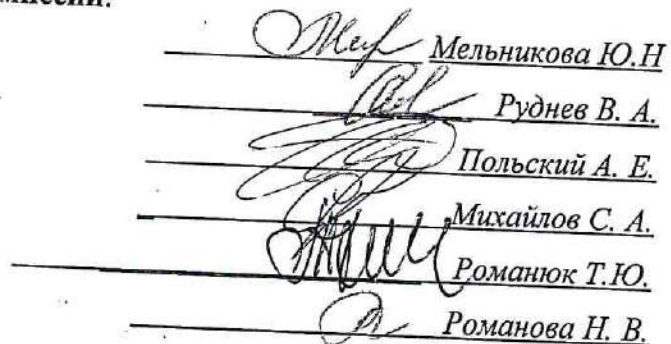 Мельникова Ю.Н
Руднев В. А.
Польский А. Е.
Михайлов С. А.
Романюк Т.Ю.
Романова Н. В.